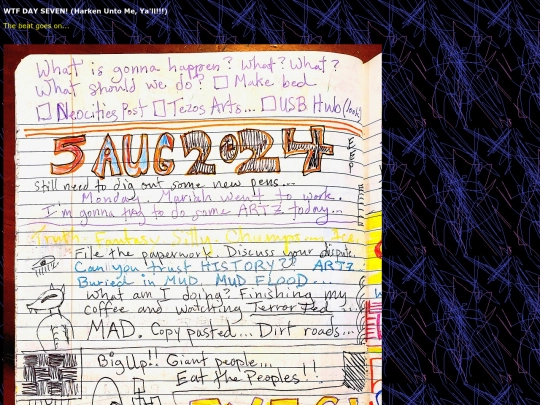 WTF DAY SEVEN! (Harken Unto Me, Ya'll!!!)
The beat goes on...
What is gonna happen? What? What?
What should we do? Make bed
Neocities Post Tezos Arts... USB Hub (look)
5 AUG 2024
still need to dig out some new pens...
Monday. Mariah went to work.
I'm gonna try to do some ARTZ today...
Truth. Fantasy. Silly. Chumps...
File the paperwork. Discuss your dispute.
Can you trust HISTORY?? ARTZ
Buried in MUD. MUD FLOOD...
What am I doing? Finishing my
coffee and watching Terror Fed...
MAD. Copy pasted... Dirt roads...
Big Up!! Giant people...
Eat the Peoples!!